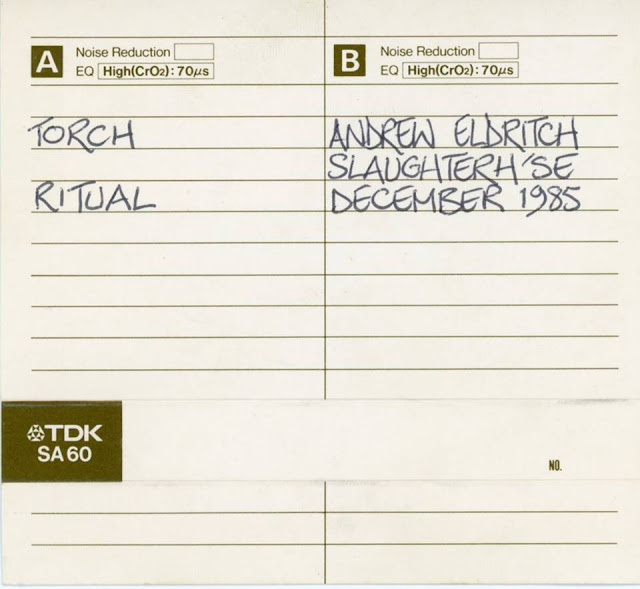 A Noise Reduction
EQ High(CrO2): 70μs
B Noise Reduction
EQ High(CrO2): 70μs
TORCH
RITUAL
ANDREW ELDRITCH
SLAUGHTERH'SE
DECEMBER 1985
TDK
SA60
NO.